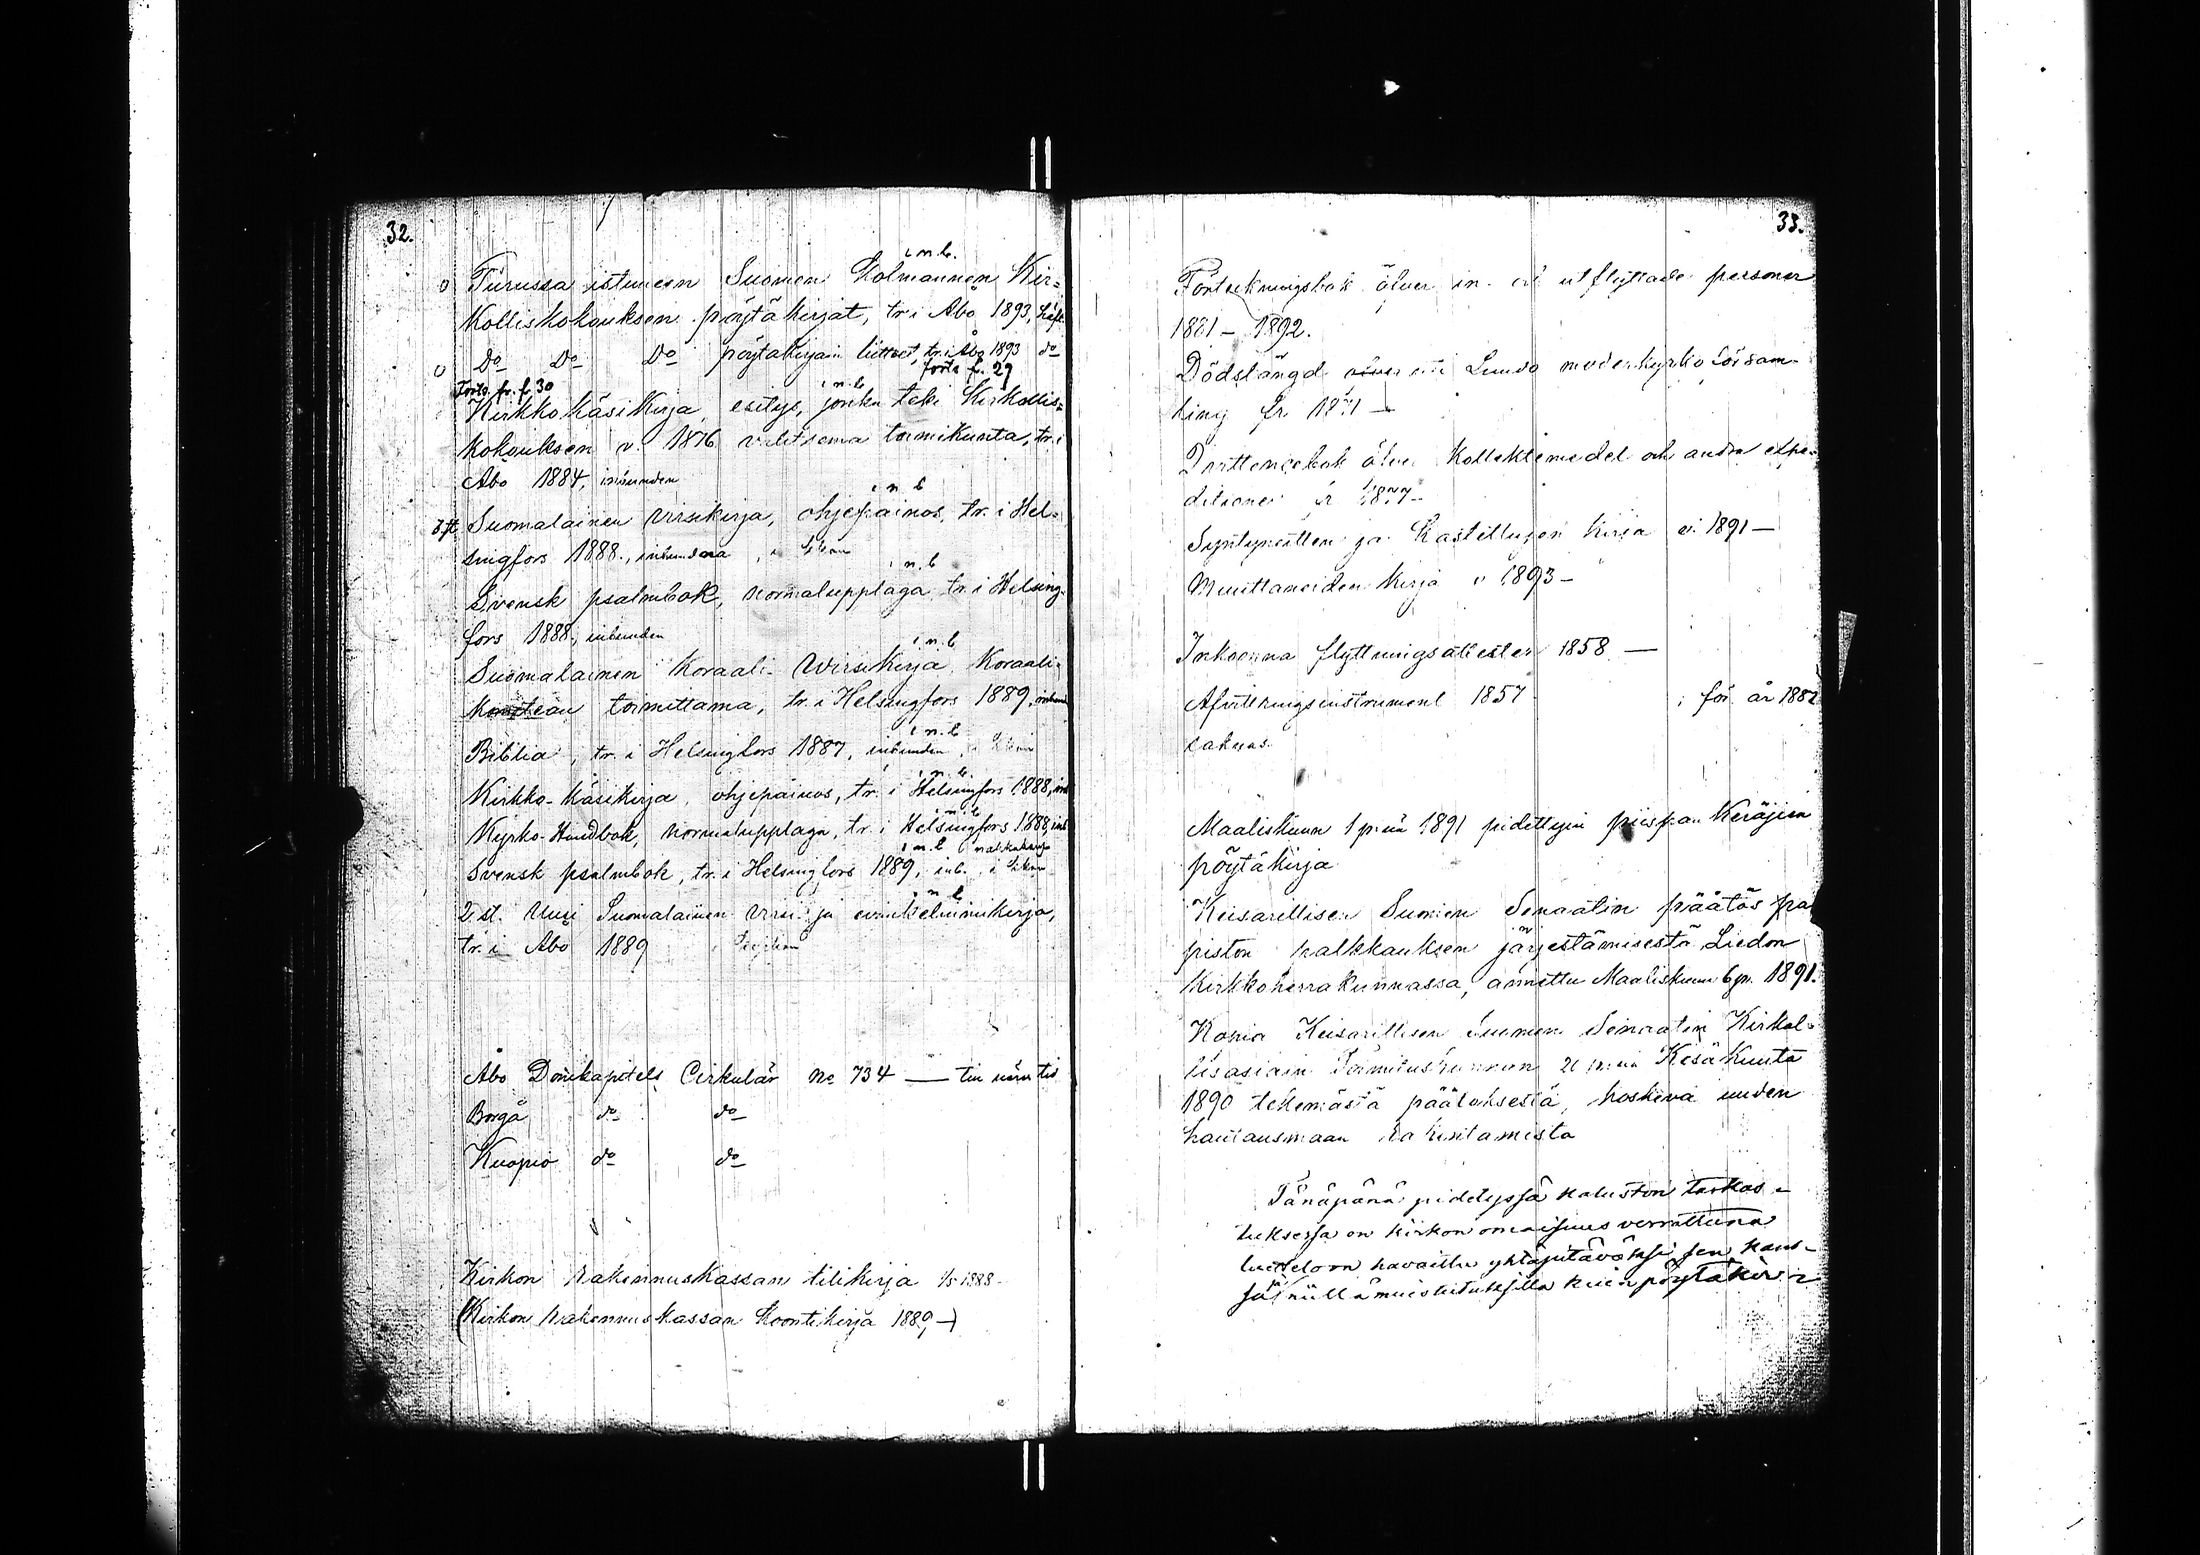 32.
i n. b.
o Turussa istuneen Suomen Kolmannen Kir=
kolliskokouksen pöytäkirjat, tr. i Åbo 1893, häft.
o Do Do Do pöytäkirjain liitteet, tr. i Åbo 1893 do
forts. fr. f. 30 forts f. 29
i n. b
Kirkkokäsikirja, esitys, jonka teki Kirkollis=
kokouksen v. 1876 valitsema toimikunta, tr. i
Åbo 1884, inbunden
i n b
3 st. Suomalainen Virsikirja, ohjepainos, tr. i Hel=
singfors 1888., inbundna, i
i n. b
Svensk psalmbok, normalupplaga tr. i Helsing=
fors 1888., inbunden
i n. b
Suomalainen Koraali-Virsikirja Koraali-
toimittama, tr. i Helsingfors 1889,
i n. b
Biblia, tr. i Helsingfors 1887, inbunden
i n. b.
Kirkko-Käsikirja, ohjepainos, tr. i Helsingfors 1888, inb
i n. b
Kyrko-Handbok, normalupplaga, tr. i Helsingfors 1888, inb
i n. b
Svensk psalmbok, tr. i Helsingfors 1889, inb. i
i n b
2 st. Uusi Suomalainen Virsi- ja evankeliumikirja,
tr. i Åbo 1889
Åbo Domkapitels Cirkulär No 734 — till närv. tid
Borgå do do
Kuopio do do
Kirkon Rakennuskassan tilikirja 1/5 1888-
(Kirkon Rakennuskassan Kontikirja 1889 —)
33.
Förteckningsbok öfver in- och utflyttade personer
1881 - 1892.
Dödslängd öfver Lundo moderkyrko försam-
ling fr. —
Qvittencebok öfver Kollektmedel och andra expe-
ditioner fr 1877-
Syntyneitten ja Kastettujen kirja v. 1891 —
Muuttaneiden kirja v 1893 —
Inkomna flyttningsattester 1858 —
Afvittringsinstrument 1857 ; för år 1882
saknas.
Maaliskuun 1 p:nä 1891 pidettyjen piispan Keräjien
pöytäkirja
Keisarillisen Suomen Senaatin päätös pa
piston palkkauksen järjestämisestä Liedon
Kirkkoherrakunnassa, annettu Maaliskuun 6 p. 1891.
Kopia Keisarillisen Suomen Senaatin Kirkol-
lisasiain Toimituskunnan p:nä Kesäkuuta
1890 tekemästä päätöksestä, koskeva uuden
hautausmaan
Tänäpänä pidetyssä kaluston tarkas-
tuksessa on kirkon omaisuus verrattuna
luetteloon havaittu yhtäpitäväksi sen kans-
sa, niillä muistutuksilla kuin pöytäkir-